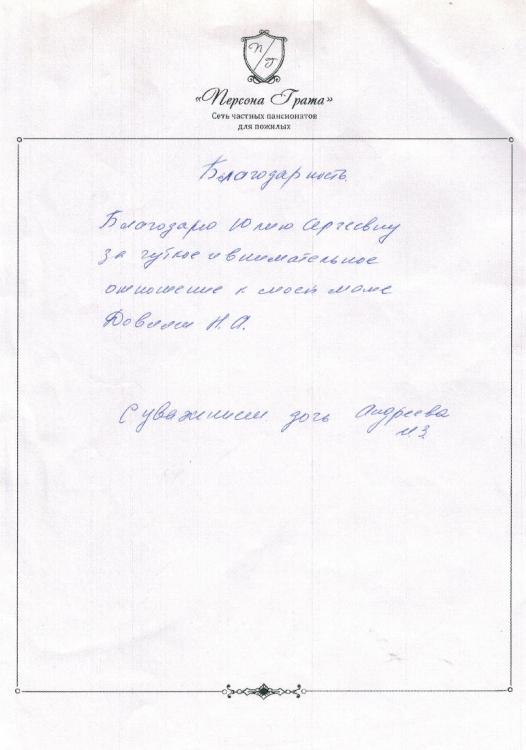 П Г
«Персона Грата»
Сеть частных пансионатов
для пожилых
Благодарность.
Благодарю Юлию Сергеевну
за чуткое и внимательное
отношение к моей маме
Н.А.
С уважением дочь Андреева